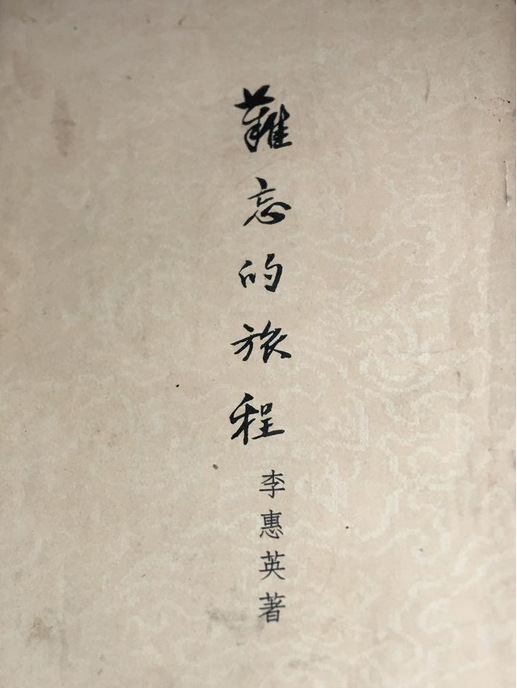 難忘的旅程
李惠英著